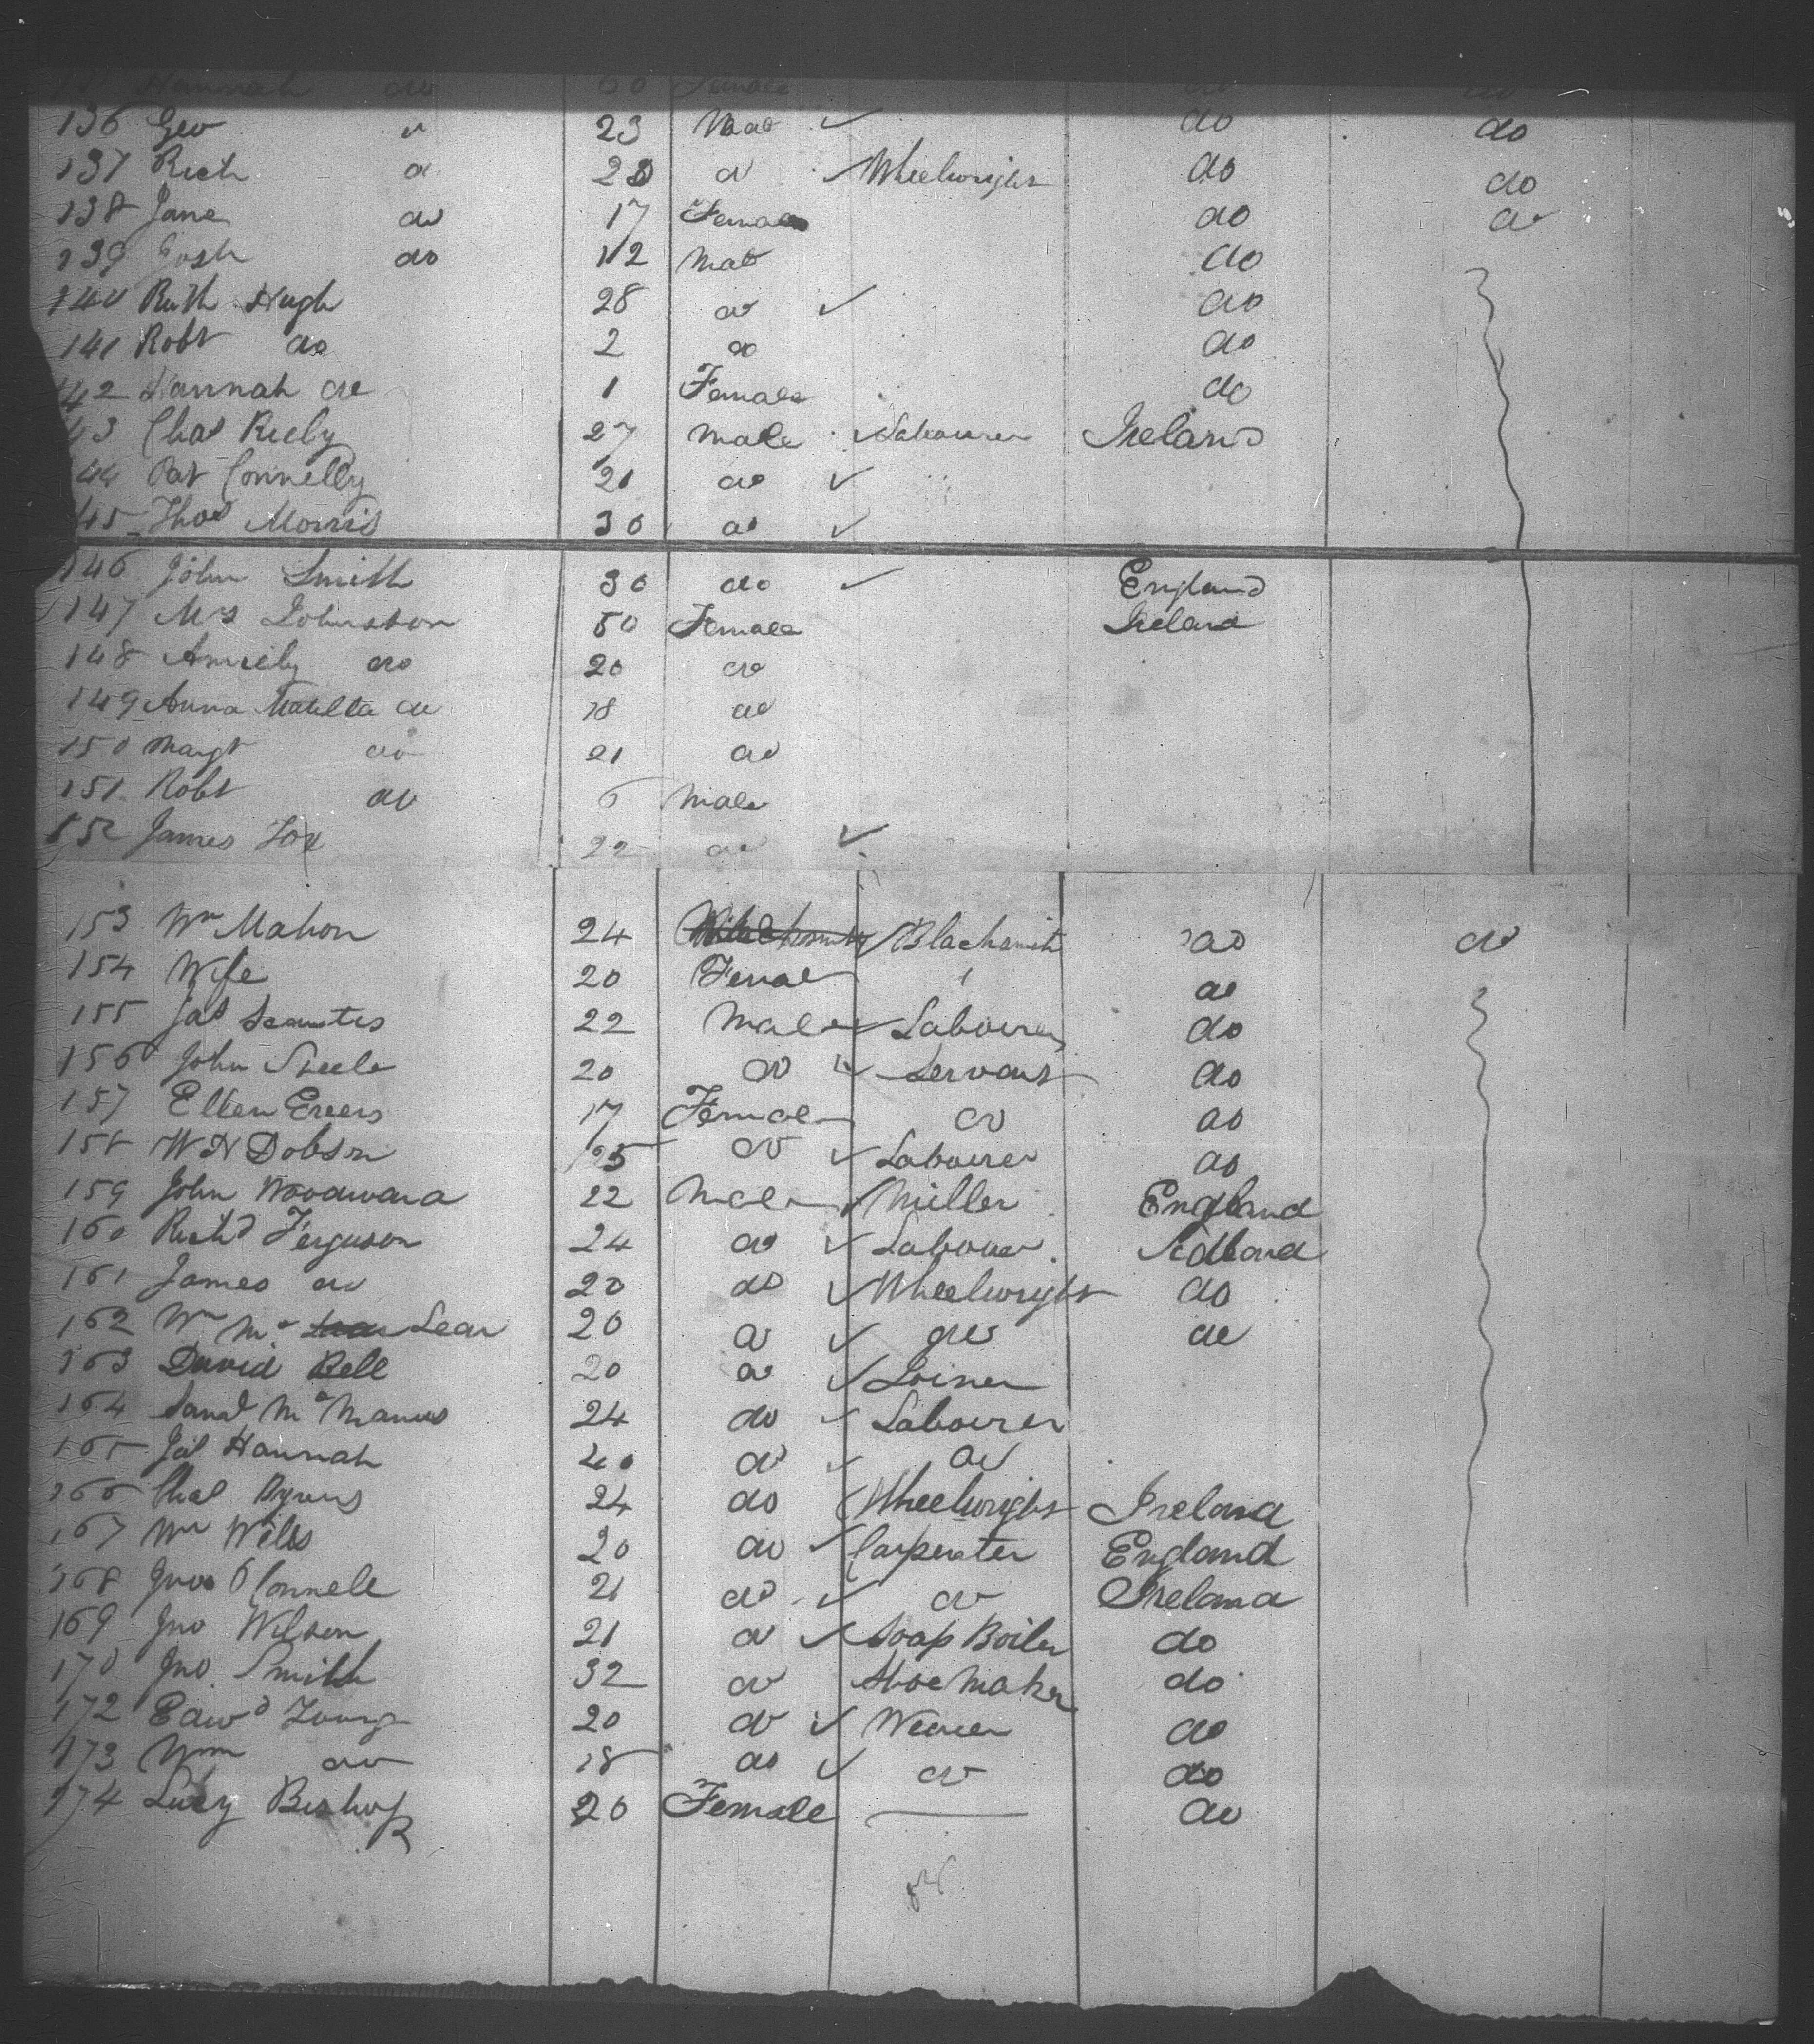 Hannah do 60 Female do do
136 Geo do 23 Male ✓ do do
137 Rich do 28 do ✓ Wheelwright do do
138 Jane do 17 Female do do
139 Josh do 12 Male do
140 Ruth Hugh 28 do ✓ do
141 Robt do 2 do do
142 Hannah do 1 Female do
143 Chas Riely 27 Male ✓ Labourer Ireland
144 Pat Connelly 21 do ✓
145 Thos Morris 30 do ✓
146 John Smith 30 do ✓ England
147 Mrs Johnston 50 Female Ireland
148 do 20 do
149 Anna Matilta do 18 do
150 Margt do 21 do
151 Robt do 6 Male
152 James Fox 22 do ✓
153 Wm Mahon 24 ✓ Blacksmith do do
154 Wife 20 Female do
155 Jas 22 Male ✓ Labourer do
156 John Steele 20 do ✓ Servant do
157 Ellen 17 Female do do
158 W H Dobson 25 do ✓ Labourer do
159 John Woodward 22 Male ✓ Miller England
160 Richd Ferguson 24 do ✓ Labourer Scotland
161 James do 20 do ✓ Wheelwright do
162 Wm Mc Lear 20 do ✓ do do
163 David Bell 20 do ✓ Joiner
164 Saml McManus 24 do ✓ Labourer
165 Jas Hannah 40 do ✓ do
166 Chas Byrens 24 do Wheelwright Ireland
167 Wm Wills 20 do ✓ Carpenter England
168 Jno O Connele 21 do ✓ do Ireland
169 Jno Wilson 21 do ✓ Soap Boiler do
170 Jno Smith 32 do Shoe Maker do
172 Edwd Young 20 do ✓ Weaver do
173 Wm do 18 do ✓ do do
174 Lucy Bishop 20 Female — do